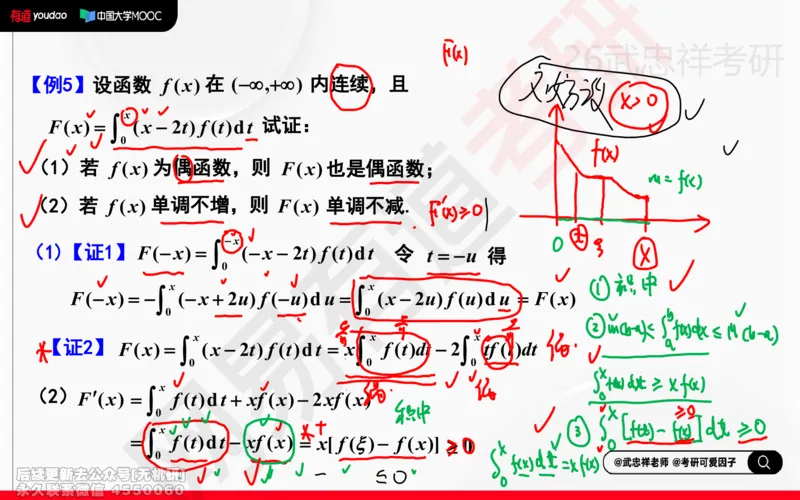 有道 youdao 中国大学MOOC
26武忠祥考研
F(x)
【例5】设函数 f(x) 在 (−∞,+∞) 内连续，且
不妨设 x>0
F(x) = ∫₀ˣ (x − 2t) f(t)dt 试证：
f(x)
（1）若 f(x) 为偶函数，则 F(x) 也是偶函数；
m = f(x)
（2）若 f(x) 单调不增，则 F(x) 单调不减. F'(x)≥0
0 ξ x
（1）【证1】 F(−x) = ∫₀⁻ˣ (−x − 2t) f(t)dt 令 t = −u 得
F(−x) = −∫₀ˣ (−x + 2u) f(−u)du = ∫₀ˣ (x − 2u) f(u)du = F(x)
① 积中
② m(b-a) ≤ ∫ₐᵇ f(x)dx ≤ M(b-a)
【证2】 F(x) = ∫₀ˣ (x − 2t) f(t)dt = x∫₀ˣ f(t)dt − 2∫₀ˣ tf(t)dt
∫₀ˣ f(t)dt ≥ x f(x)
（2）F′(x) = ∫₀ˣ f(t)dt + xf(x) − 2xf(x)
积中
③ ∫₀ˣ [f(t) − f(x)] dt ≥ 0
= ∫₀ˣ f(t)dt − xf(x) = x[f(ξ) − f(x)] ≥ 0
∫₀ˣ f(x)dt = x f(x)
− ≤0
@武忠祥老师 @考研可爱因子
后续更新去公众号[无机研]
永久联系微信 4550060